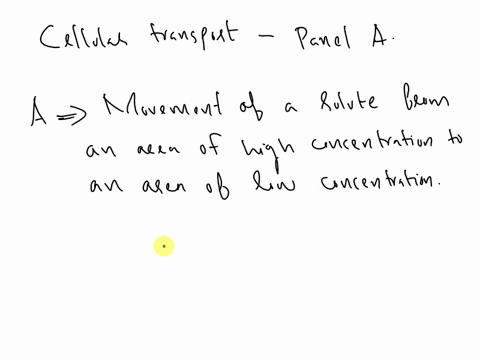 Cellular transport - Panel A.
A ⇒ Movement of a solute from
an area of high concentration to
an area of low concentration.